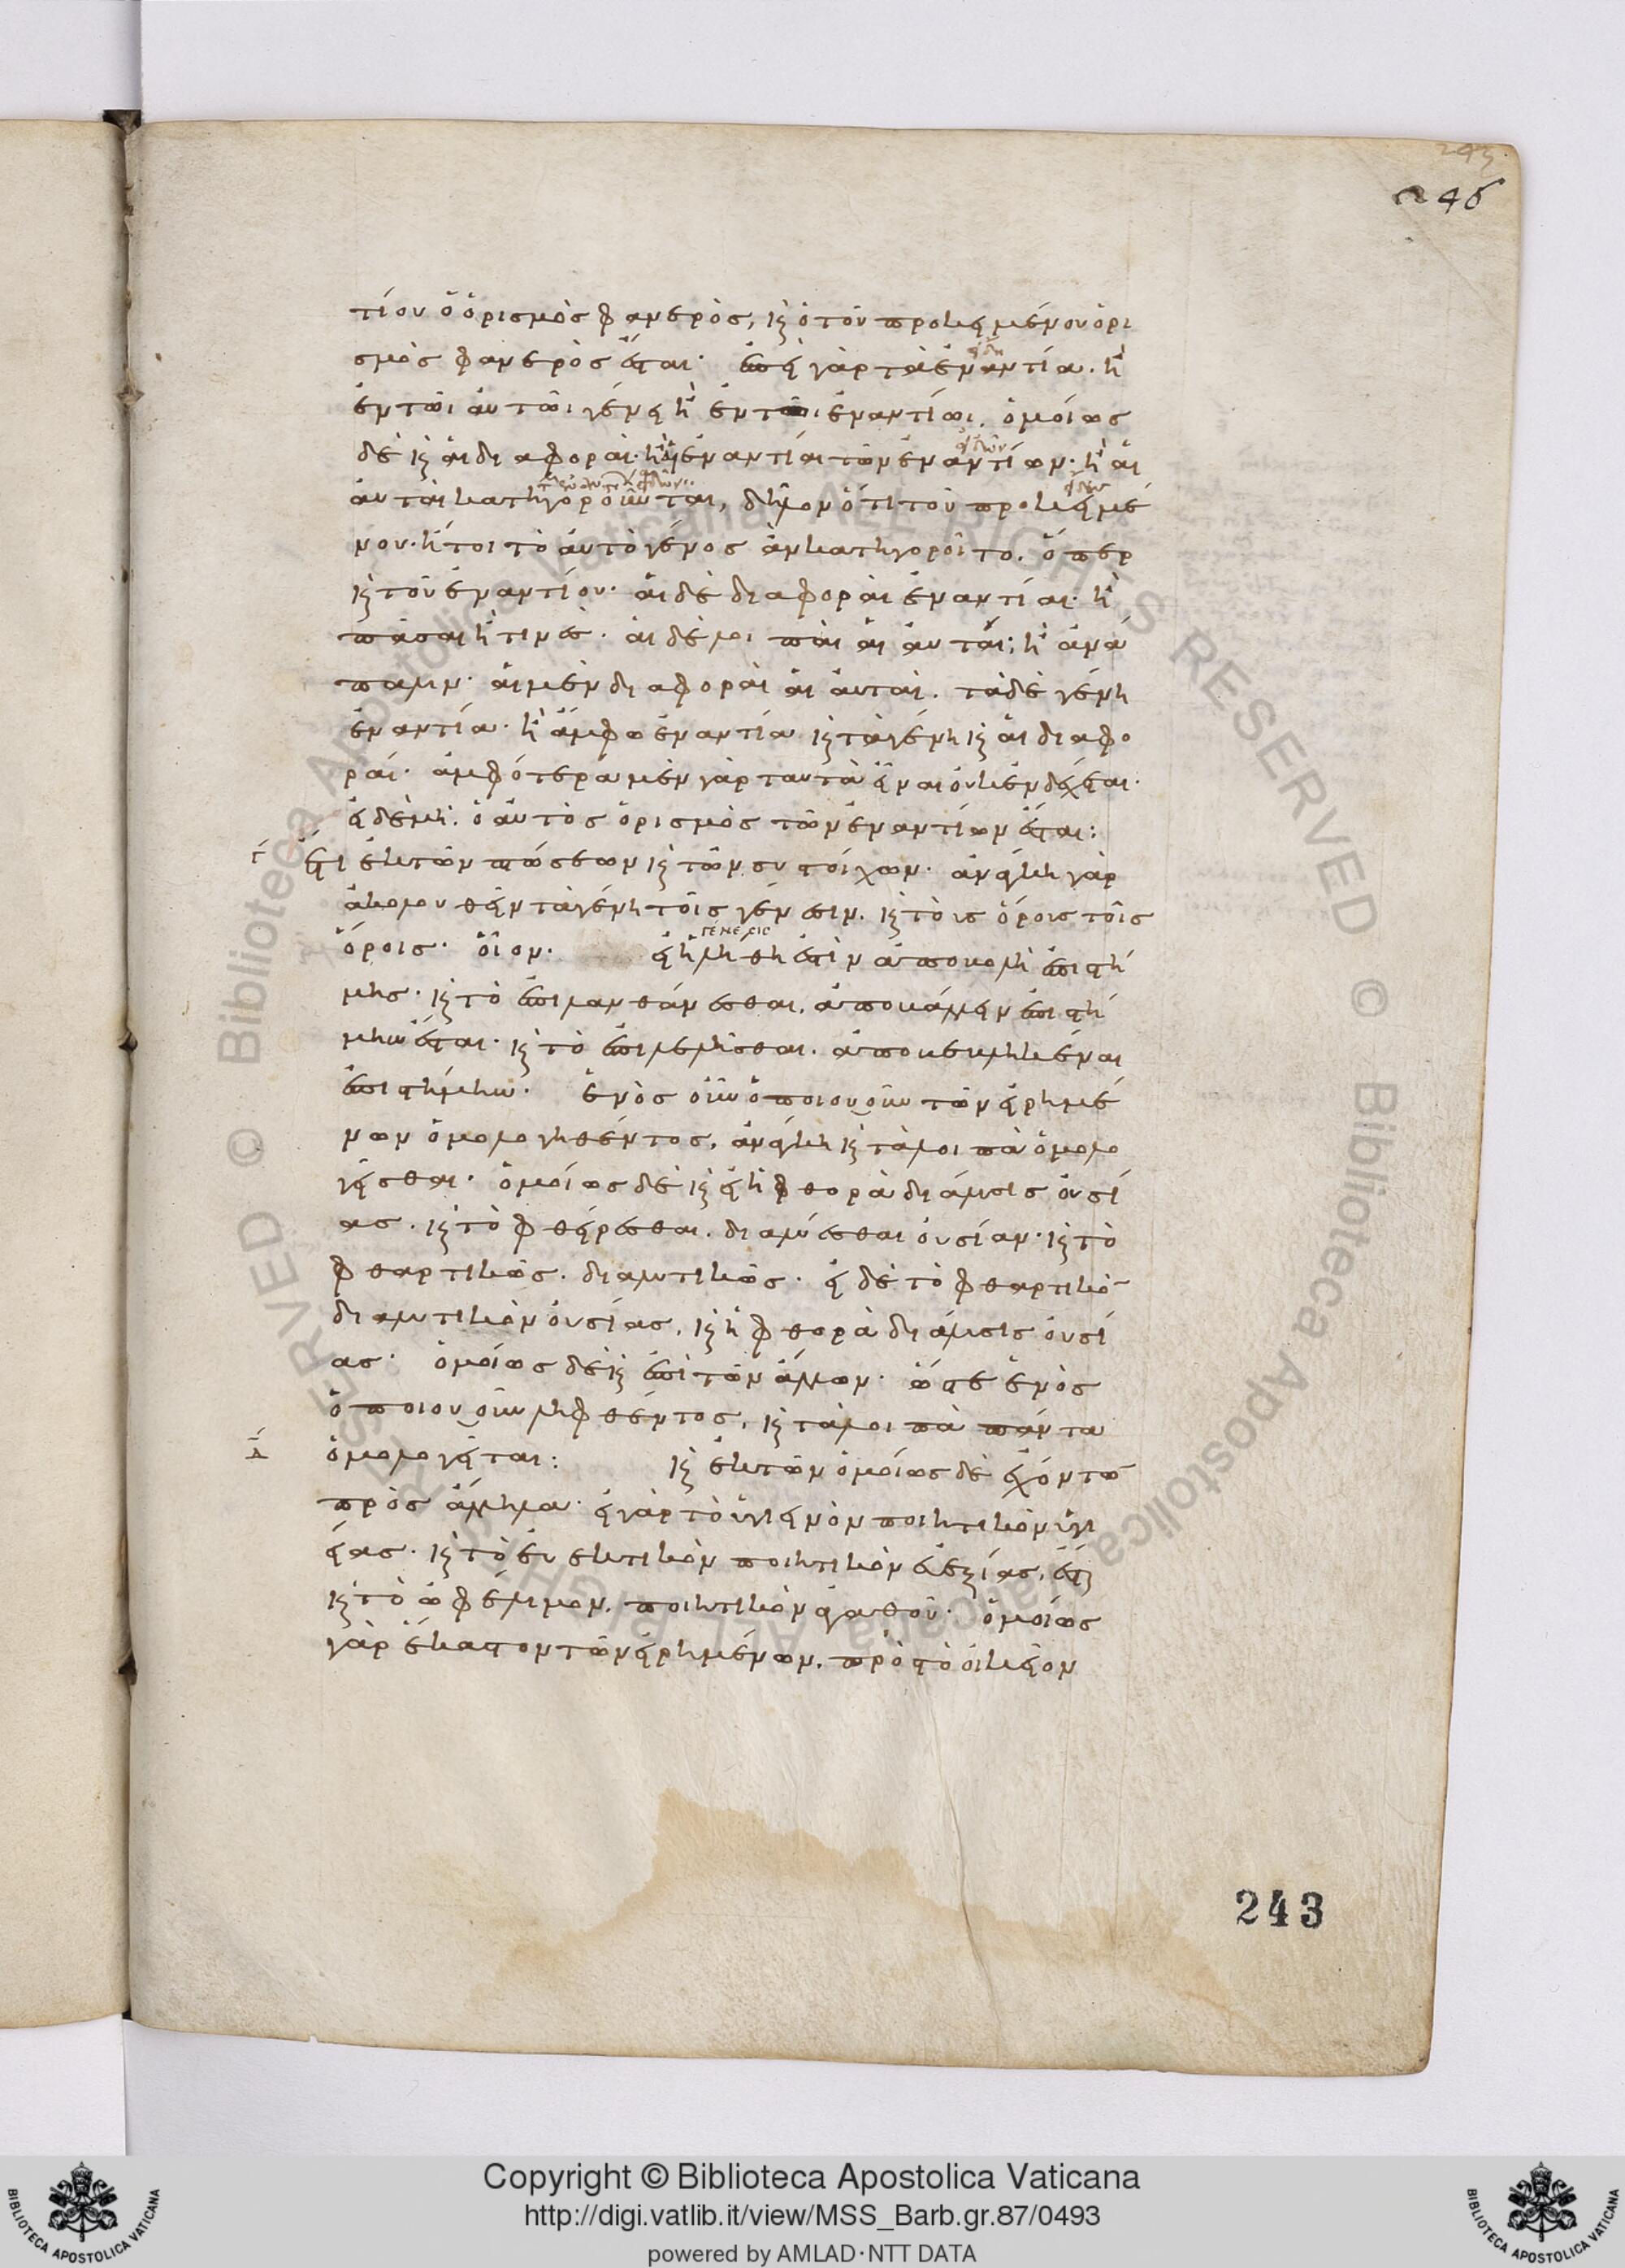 243
246
τίου ὁ ὁρισμὸς φανερός, καὶ ὁ τοῦ προκειμένου ὁρι
σμὸς φανερὸς ἔσται· ἐπεὶ γὰρ τὰ ἐναντία. ἢ
ἐν τῶι αὐτῶι γένει ἢ ἐν τῶι ἐναντίωι. ὁμοίως
δὲ καὶ αἱ διαφοραὶ· ἢ αἱ ἐναντίαι τῶν ἐναντίων· ἢ αἱ
αὐταὶ κατηγοροῦνται, δῆλον ὅτι τοῦ προκειμέ
νου· ἤτοι τὸ αὐτὸ γένος ἂν κατηγοροῖτο. ὅπερ
καὶ τοῦ ἐναντίου· αἱ δὲ διαφοραὶ ἐναντίαι· ἢ
πᾶσαι ἢ τινές. αἱ δὲ λοιπαὶ αἱ αὐταί; ἢ ἀνά
παλιν· αἱ μὲν διαφοραὶ αἱ αὐταὶ. τὰ δὲ γένη
ἐναντία· ἢ ἄμφω ἐναντία καὶ τὰ γένη καὶ αἱ διαφο
ραί· ἀμφότερα μὲν γὰρ ταυτὰ εἶναι οὐκ ἐνδέχεται·
εἰ δὲ μὴ. ὁ αὐτὸς ὁρισμὸς τῶν ἐναντίων ἔσται:
ἔτι ἐκ τῶν πτώσεων καὶ τῶν συστοίχων· ἀνάγκη γὰρ
ἀκολουθεῖν τὰ γένη τοῖς γένεσιν. καὶ τοὺς ὅρους τοῖς
ὅροις· οἷον· εἰ ἡ λήθη ἐστὶν ἀποβολὴ ἐπιστή
μης· καὶ τὸ ἐπιλανθάνεσθαι. ἀποβάλλειν ἐπιστή
μην ἔσται· καὶ τὸ ἐπιλελῆσθαι. ἀποβεβληκέναι
ἐπιστήμην· ἑνὸς οὖν ὁποιουοῦν τῶν εἰρημέ
νων ὁμολογηθέντος, ἀνάγκη καὶ τὰ λοιπὰ ὁμολο
γεῖσθαι· ὁμοίως δὲ καὶ εἰ ἡ φθορὰ διάλυσις οὐσί
ας. καὶ τὸ φθείρεσθαι. διαλύεσθαι οὐσίαν· καὶ τὸ
φθαρτικῶς. διαλυτικῶς· εἰ δὲ τὸ φθαρτικὸ
διαλυτικὸν οὐσίας, καὶ ἡ φθορὰ διάλυσις οὐσί
ας· ὁμοίως δὲ καὶ ἐπὶ τῶν ἄλλων· ὥστε ἑνὸς
ὁποιουοῦν ληφθέντος, καὶ τὰ λοιπὰ πάντα
ὁμολογεῖται: καὶ ἐκ τῶν ὁμοίως δὲ ἐχόντω
πρὸς ἄλληλα· εἰ γὰρ τὸ ὑγιεινὸν ποιητικὸν ὑγι
είας· καὶ τὸ εὐεκτικὸν ποιητικὸν εὐεξίας, ἔσται
καὶ τὸ ὠφέλιμον. ποιητικὸν ἀγαθοῦ· ὁμοίως
γὰρ ἕκαστον τῶν εἰρημένων. πρὸς τὸ οἰκεῖον
243
Copyright © Biblioteca Apostolica Vaticana
http://digi.vatlib.it/view/MSS_Barb.gr.87/0493
powered by AMLAD·NTT DATA